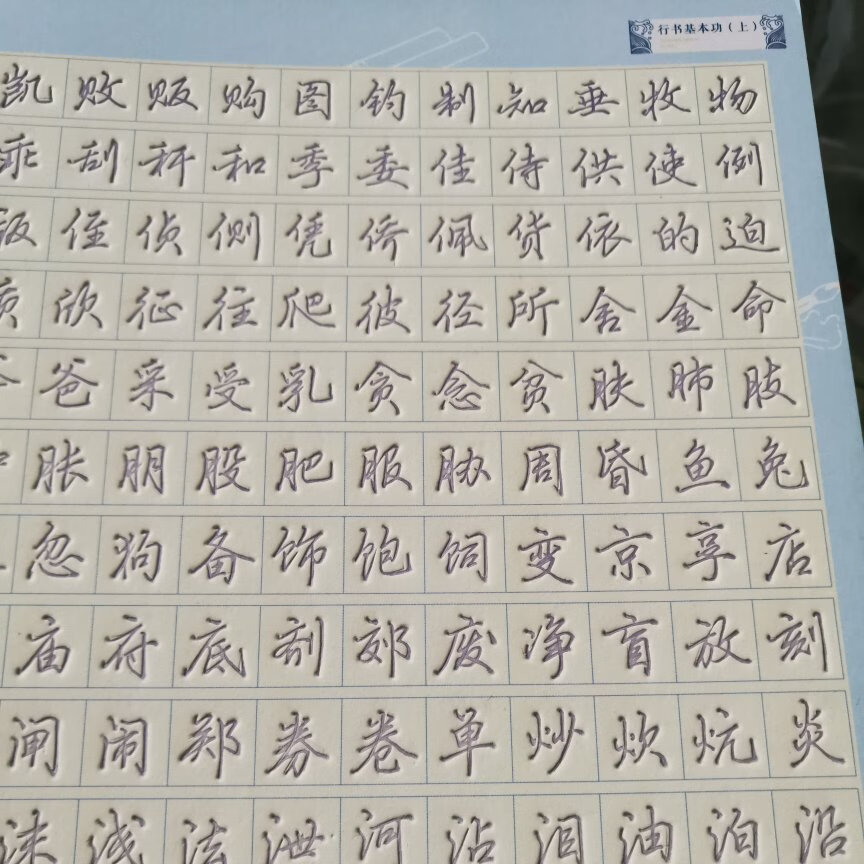 行书基本功（上）
凯 败 贩 购 图 钓 制 知 垂 牧 物
乖 刮 秆 和 季 委 佳 侍 供 使 例
版 侄 侦 侧 凭 侨 佩 货 依 的 迫
质 欣 征 往 爬 彼 径 所 舍 金 命
爸 采 受 乳 贪 念 贫 肤 肺 肢
胀 朋 股 肥 服 胁 周 昏 鱼 兔
忽 狗 备 饰 饱 饲 变 京 享 店
庙 府 底 剂 郊 废 净 盲 放 刻
闸 闹 郑 券 卷 单 炒 炊 炕 炎
沫 浅 法 泄 河 沾 泪 油 泊 沿